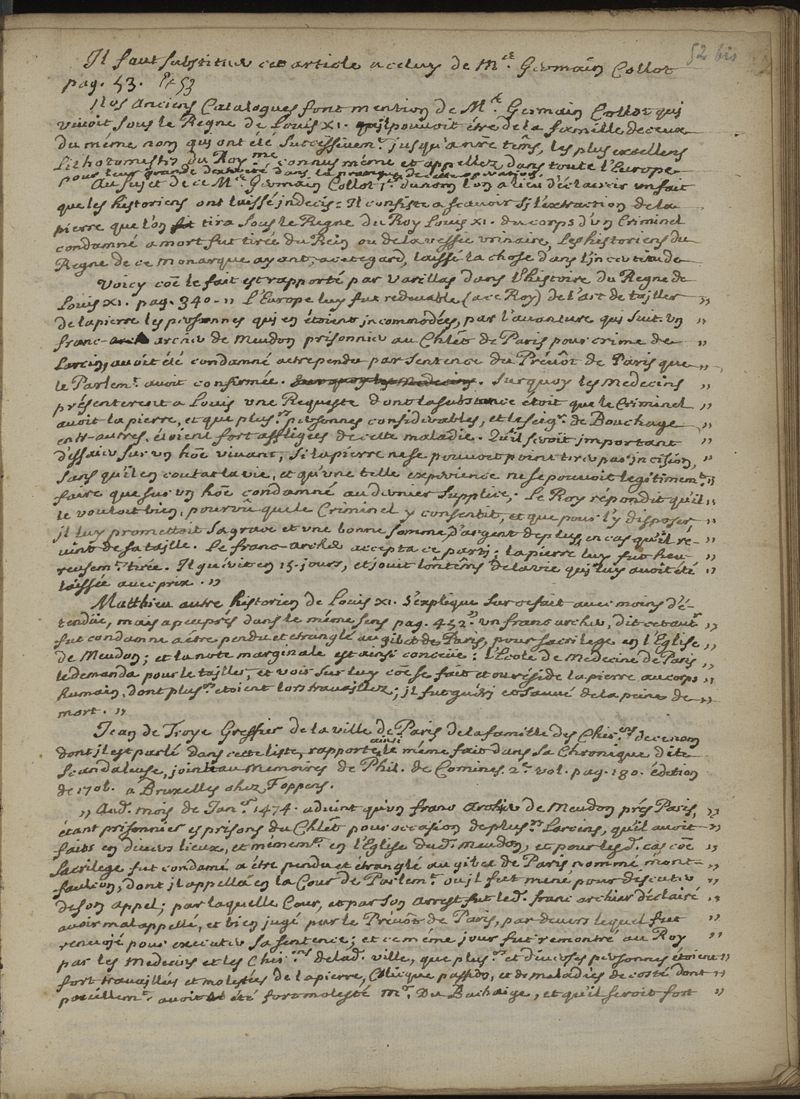 52 bis
Il faut substituer cet article a celuy de Mre. Germain Collot
pag. 53. Pt 53
Nos Anciens Catalogues font mention de Mre. Germain Collot qui
vivoit sous le Regne de Louis XI. qu'il pouvoit être de la famille de ceux
du même nom qui ont été successivemt. jusqu'a nre tems, les plus excellens
Lithotomistes du Roy me connus même et appellez dans toute l'Europe
pour leur grande dexterité dans la pratique de cette operation.
Au sujet de ce Mre. Germain Collot 1er. du nom l'on a lieu d'éclaircir un fait
que les historiens ont laissé indecis: Il consiste a scavoir si l'extraction de la
pierre que l'on fit tira sous le Regne du Roy Louis XI. du corps d'un Criminel
condamné a mort fut tirée du Rein ou de la vessie urinaire, Les historiens du
Regne de ce Monarque ayant, a cet egard, laissé la chose dans l'incertitude
Voicy coe le fait est rapporté par Varillas dans l'histoire du Regne de
Louis XI. pag. 340. ,, L'Europe luy fut redevable (a ce Roy) de l'art de tailler ,,
de la pierre les personnes qui en étoient incommodées, par l'avanture qui suit. Un ,,
franc-arch archer de Meudon prisonnier au Chlêt de Paris pour crime de ,,
Larcin, avoit été condamné a etre pendu par sentence du Prévôt de Paris que ,,
le Parlemt. avoit confirmée. Sur quoy les Medecins. Surquoy les Medecins ,,
présenterent a Louis une Requeste dont la substance étoit que le Criminel ,,
avoit la pierre, et que plusrs. personnes considerables, et le seigr. de Bouchage ,,
entr-autres, étoient fort affligées de cette maladie. Qu'il seroit important ,,
d'essaier sur un hoe vivant, si la pierre ne se pouvoit point tirer par incision, ,,
sans qu'il en coutat la vie, et qu'une telle experience ne se pouvoit legitimemt. ,,
faire que sur un hoe condamné au dernier supplice. Le Roy répondit qu'il ,,
le vouloit bien, pourvu que le Criminel y consentit, et que pour l'y disposer, ,,
il luy promettoit sa grace et une bonne somme d'argent de plus, en cas qu'il re- ,,
vint de sa taille. Le franc-archer accepta ce parti; la pierre luy fut heu- ,,
reusemt. tirée. Il guérit en 15. jours, et jouit lontêms de la vie qui luy avoit été ,,
laissée avec prix. ,,
Matthieu autre historien de Louis XI. s'explique sur ce fait avec moins d'é-
tendüe, mais a peu prés dans le même sens pag. 452. ,, Un franc archer, dit cet autr ,,
fut condamné a être pendu et etranglé au gibet de Paris, pour sacrilege en l'Eglise ,,
de Meudon; et la note marginale est ainsi concüe: l'Ecole de Medecine de Paris ,,
le demanda pour le tailler, et voir sur luy coe se fait et ou réside la pierre au corps ,,
humain, dont plusrs. etoient lors travaillez; il fut guéri et sauvé de la peine de ,,
mort. ,,
Jean de Troye Greffier de la ville de Paris de la famille des Chirens. de ce nom
dont il est parlé dans cette liste, rapporte ainsi le même fait dans sa Chronique dite
Scandaleuse, jointe au Memoires de Phil. de Comines. 2e. vol. pag. 180. édition
de 1706. a Bruxelles chez Foppens.
,, Aud. mois de Janer. 1474. advint qu'un franc Archer de Meudon prés Paris, ,,
étant prisonnier es prisons du Chlêt pour occasion de plusrs. Larcins, qu'il avoit ,,
faits en divers lieux, et mêmemt. en l'Eglise dud. Meudon, et pour lesd. cas coe ,,
Sacrilege fut condamé a être pendu et étranglé au gibet de Paris nommé mont- ,,
faulcon, dont il appella en la Cour de Parlemt. ou il fut mené pour discuter ,,
de son appel; par laquelle Cour, et par son Arrest fut led. franc archer déclaré ,,
avoir mal appellé, et bien jugé par le Prévôt de Paris, par devers lequel fut ,,
renvoié pour executer sa sentence; et ce même jour fut remontré au Roy ,,
par les Medecins et les Chirens. de lad. ville, que plusrs. et diverses personnes étoient ,,
fort travaillées et molestées de la pierre, Colicque passion, et de maladies de costé dont ,,
pareillemt. avoit été fort molesté Mr. Du Bochaige, et qu'il seroit fort ,,